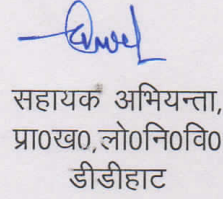 सहायक अभियन्ता,
प्रा0ख0,लो0नि0वि0
डीडीहाट